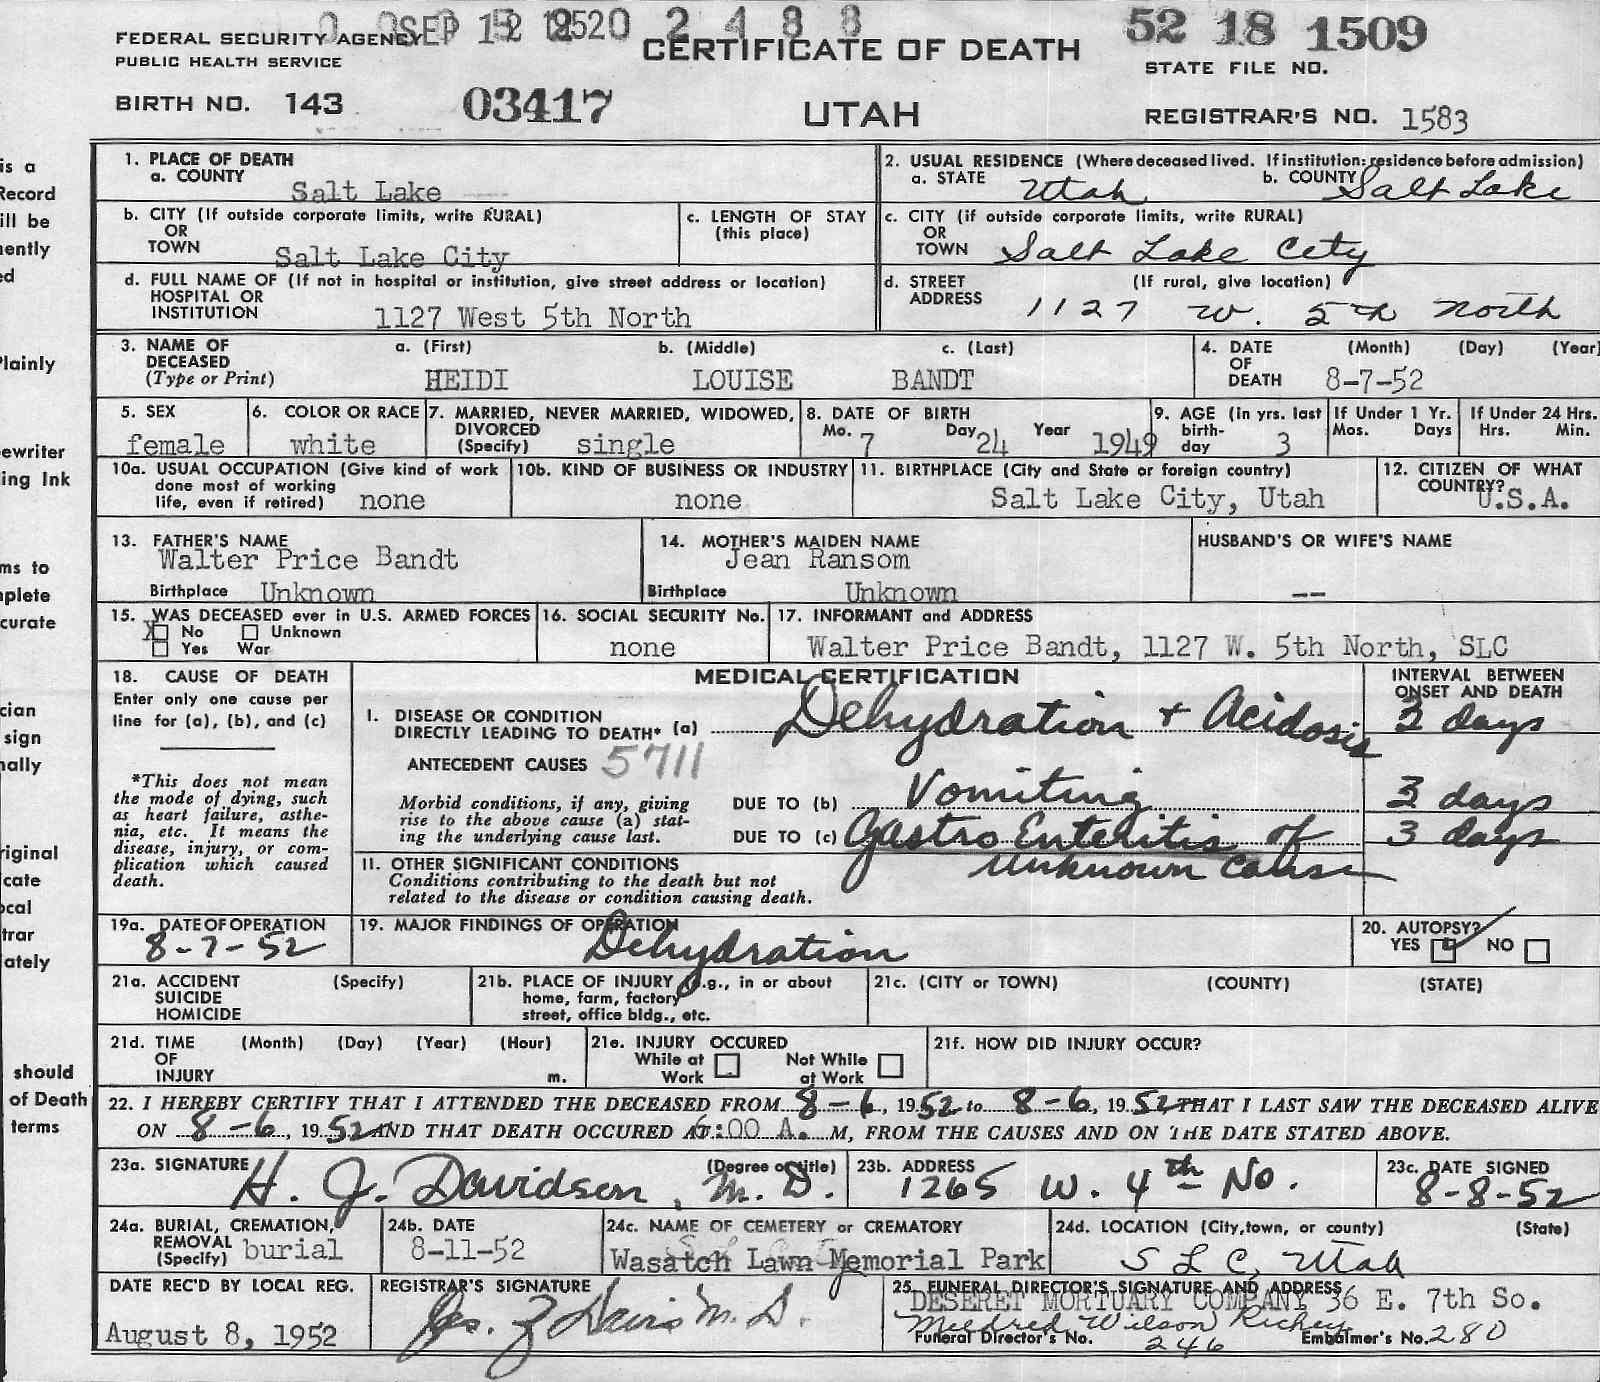 SEP 12 1952 0 2 4 8 8
52 18 1509
FEDERAL SECURITY AGENCY
PUBLIC HEALTH SERVICE
CERTIFICATE OF DEATH
STATE FILE NO.
BIRTH NO. 143 03417 UTAH REGISTRAR'S NO. 1583
is a
Record
ill be
nently
ed
Plainly
ewriter
ing Ink
ms to
mplete
curate
cian
sign
nally
riginal
cate
ocal
trar
ately
should
of Death
terms
1. PLACE OF DEATH
a. COUNTY Salt Lake
2. USUAL RESIDENCE (Where deceased lived. If institution: residence before admission)
a. STATE Utah b. COUNTY Salt Lake
b. CITY (If outside corporate limits, write RURAL)
OR
TOWN Salt Lake City
c. LENGTH OF STAY
(this place)
c. CITY (if outside corporate limits, write RURAL)
OR
TOWN Salt Lake City
d. FULL NAME OF (If not in hospital or institution, give street address or location)
HOSPITAL OR
INSTITUTION 1127 West 5th North
d. STREET (If rural, give location)
ADDRESS 1127 W. 5th North
3. NAME OF a. (First) b. (Middle) c. (Last)
DECEASED
(Type or Print) HEIDI LOUISE BANDT
4. DATE (Month) (Day) (Year)
OF
DEATH 8-7-52
5. SEX
female
6. COLOR OR RACE
white
7. MARRIED, NEVER MARRIED, WIDOWED,
DIVORCED
(Specify) single
8. DATE OF BIRTH
Mo. 7 Day 24 Year 1949
9. AGE (in yrs. last
birth-
day 3
If Under 1 Yr.
Mos. Days
If Under 24 Hrs.
Hrs. Min.
10a. USUAL OCCUPATION (Give kind of work
done most of working
life, even if retired) none
10b. KIND OF BUSINESS OR INDUSTRY
none
11. BIRTHPLACE (City and State or foreign country)
Salt Lake City, Utah
12. CITIZEN OF WHAT
COUNTRY?
U.S.A.
13. FATHER'S NAME
Walter Price Bandt
Birthplace Unknown
14. MOTHER'S MAIDEN NAME
Jean Ransom
Birthplace Unknown
HUSBAND'S OR WIFE'S NAME
--
15. WAS DECEASED ever in U.S. ARMED FORCES
X No Unknown
Yes War
16. SOCIAL SECURITY No.
none
17. INFORMANT and ADDRESS
Walter Price Bandt, 1127 W. 5th North, SLC
18. CAUSE OF DEATH
Enter only one cause per
line for (a), (b), and (c)
*This does not mean
the mode of dying, such
as heart failure, asthe-
nia, etc. It means the
disease, injury, or com-
plication which caused
death.
MEDICAL CERTIFICATION
INTERVAL BETWEEN
ONSET AND DEATH
I. DISEASE OR CONDITION
DIRECTLY LEADING TO DEATH* (a) Dehydration + Acidosis days
ANTECEDENT CAUSES 5711
Morbid conditions, if any, giving
rise to the above cause (a) stat-
ing the underlying cause last.
DUE TO (b) Vomiting 3 days
DUE TO (c) Gastro Enteritis of 3 days
Unknown cause
II. OTHER SIGNIFICANT CONDITIONS
Conditions contributing to the death but not
related to the disease or condition causing death.
19a. DATE OF OPERATION
8-7-52
19. MAJOR FINDINGS OF OPERATION
Dehydration
20. AUTOPSY?
YES NO
21a. ACCIDENT (Specify)
SUICIDE
HOMICIDE
21b. PLACE OF INJURY (e.g., in or about
home, farm, factory
street, office bldg., etc.
21c. (CITY or TOWN) (COUNTY) (STATE)
21d. TIME (Month) (Day) (Year) (Hour)
OF
INJURY m.
21e. INJURY OCCURED
While at Not While
Work at Work
21f. HOW DID INJURY OCCUR?
22. I HEREBY CERTIFY THAT I ATTENDED THE DECEASED FROM 8-6, 1952 to 8-6, 1952 THAT I LAST SAW THE DECEASED ALIVE
ON 8-6, 1952 AND THAT DEATH OCCURED AT 6:00 A. M, FROM THE CAUSES AND ON THE DATE STATED ABOVE.
23a. SIGNATURE (Degree or title)
H. J. Davidson, M.D.
23b. ADDRESS
1265 W. 4th No.
23c. DATE SIGNED
8-8-52
24a. BURIAL, CREMATION,
REMOVAL
(Specify) burial
24b. DATE
8-11-52
24c. NAME OF CEMETERY or CREMATORY
Wasatch Lawn Memorial Park
24d. LOCATION (City, town, or county) (State)
S L C, Utah
DATE REC'D BY LOCAL REG.
August 8, 1952
REGISTRAR'S SIGNATURE
Davis M. D.
25. FUNERAL DIRECTOR'S SIGNATURE AND ADDRESS
DESERET MORTUARY COMPANY 36 E. 7th So.
Mildred Wilson Richey
Funeral Director's No. 246 Embalmer's No. 280